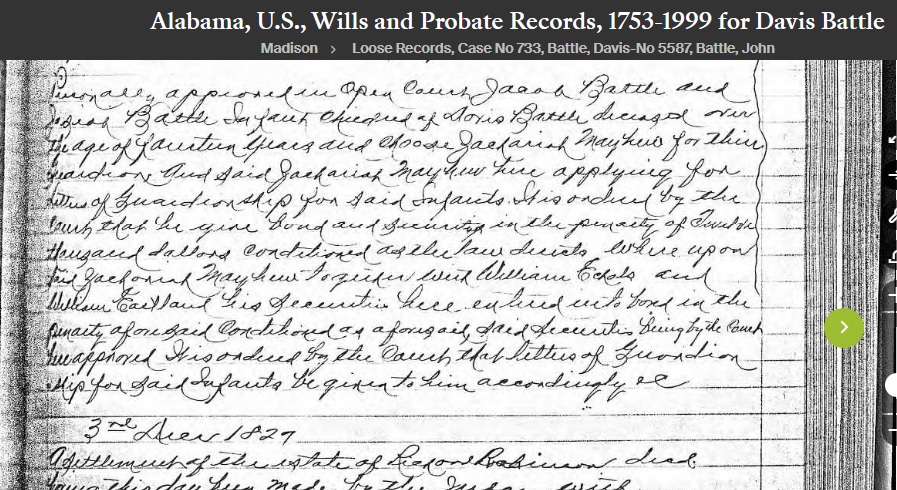 Alabama, U.S., Wills and Probate Records, 1753-1999 for Davis Battle
Madison > Loose Records, Case No 733, Battle, Davis-No 5587, Battle, John
Personally appeared in Open Court Jacob Battle and
Battle Infant Children of Davis Battle deceased over
the age of fourteen years and choose Zachariah Mayhew for their
Guardian And said Zachariah Mayhew here applying for
letters of Guardianship for said Infants It is ordered by the
Court that he give bond and security in the penalty of Twelve
thousand dollars conditioned as the law directs Where upon
said Zachariah Mayhew together with William Echols and
William his Securities here entered into bond in the
penalty aforesaid Conditioned as aforesaid, said Securities being by the Court
approved It is ordered by the Court that letters of Guardian
ship for said Infants be given to him accordingly &c
3rd 1827
A settlement of the estate of Robinson decd
this day been made by the with